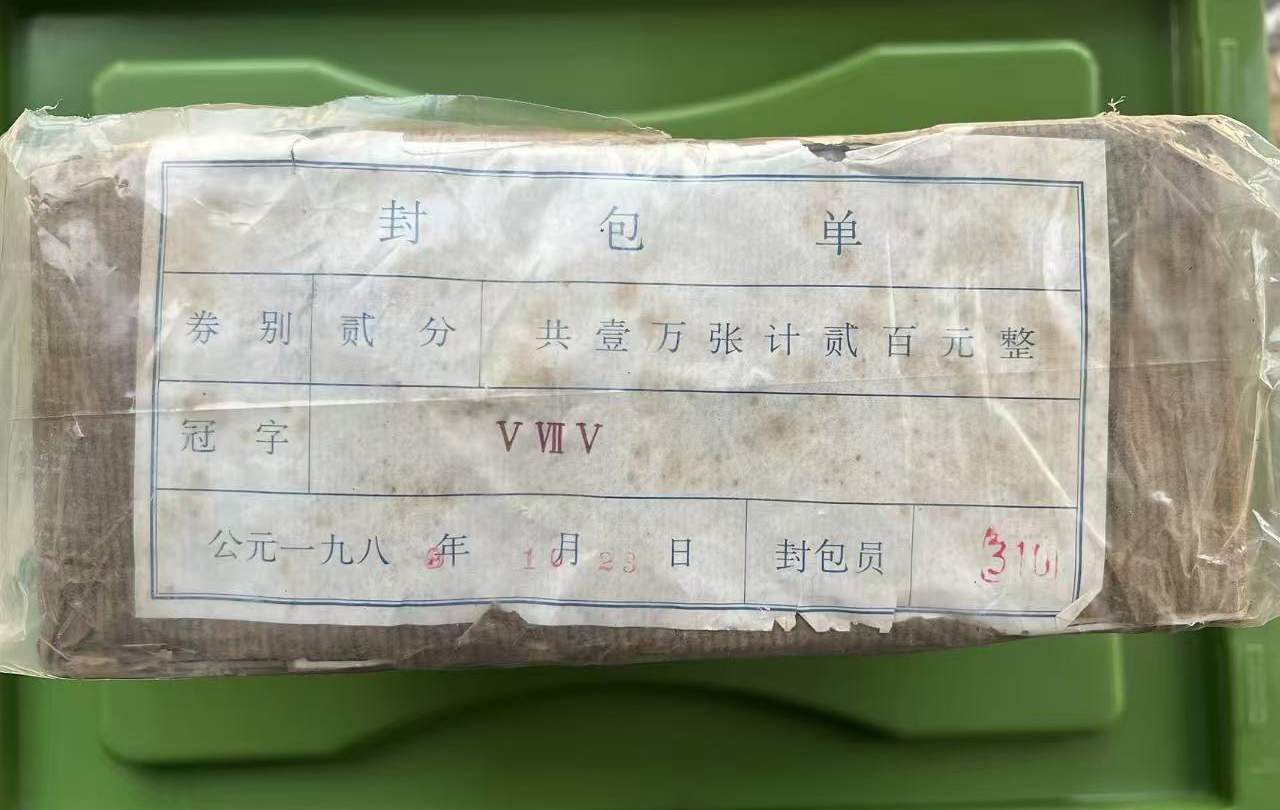 封包单
券别 贰分 共壹万张计贰百元整
冠字 V Ⅶ V
公元一九八8年10月23日 封包员 310